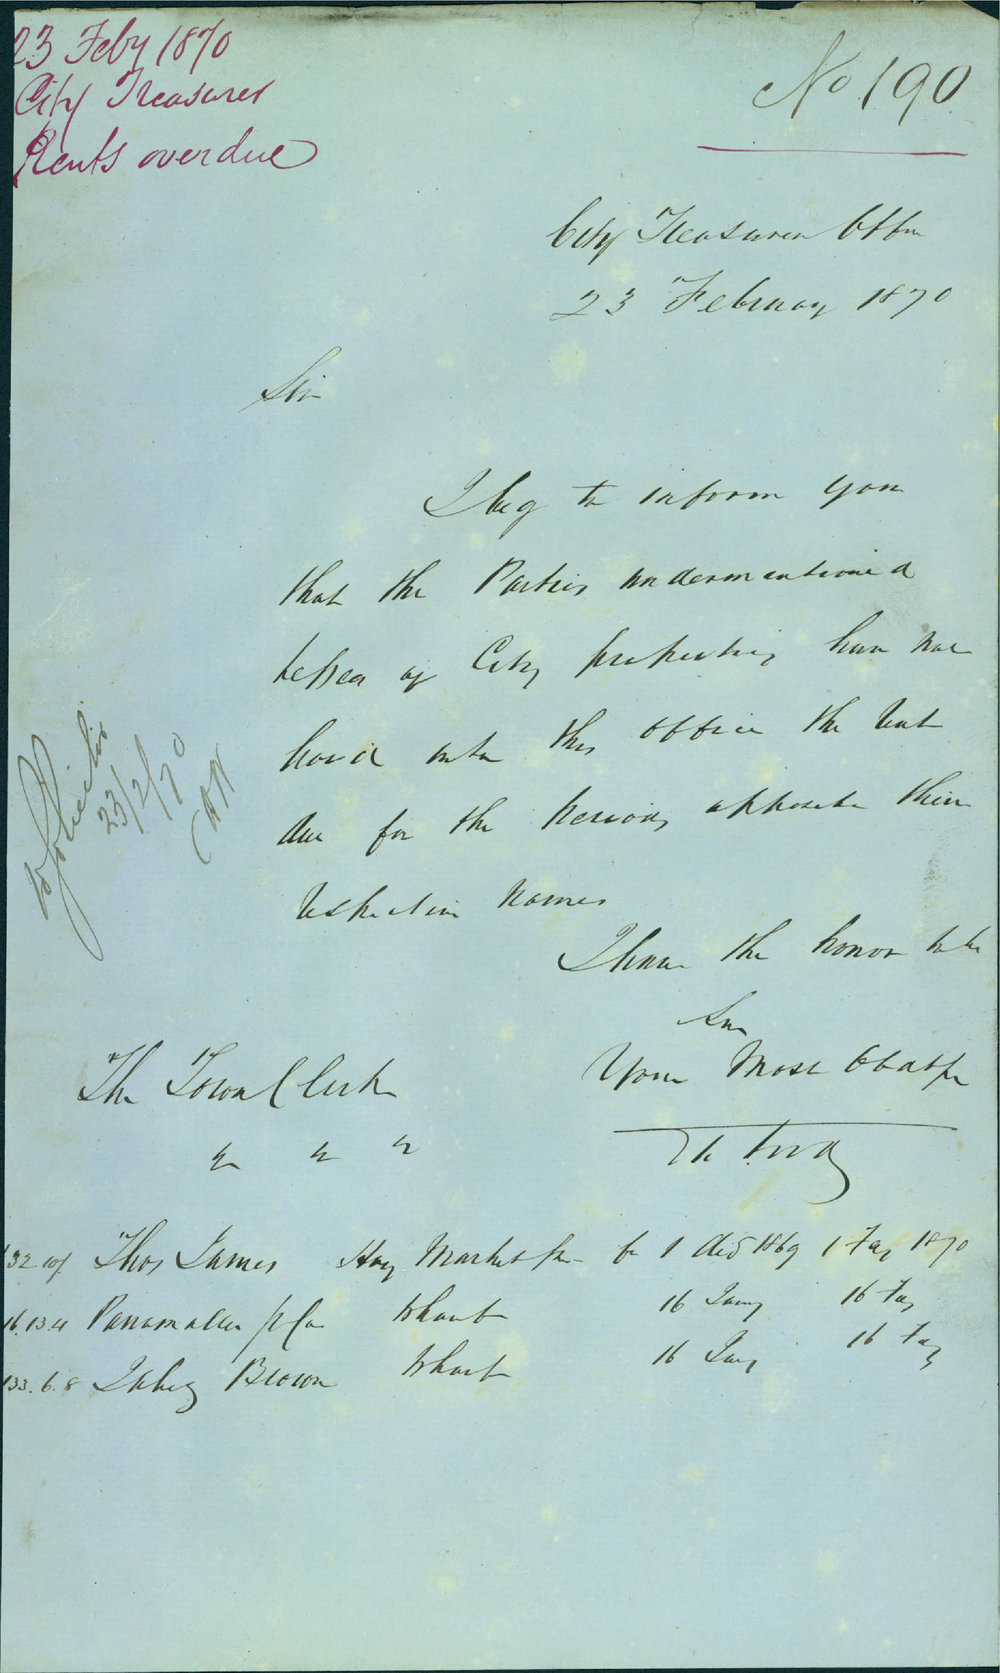 23 Feby 1870
City Treasurer
Rents overdue
No 190
City Treasurers Office
23 February 1870
Sir
I beg to inform you
that the Parties undermentioned
lessees of City properties have not
paid into this office the rent
due for the periods opposite their
respective names
I have the honor to be
Sir
Your Most Obdt
The Town Clerk
" " "
to Solicitor
23/2/70
Thos James Hay Market for 1 Decr 1869 1 Fay 1870
16.13.4 & Co Wharf 16 Jany 16 Fay
133.6.8 Jabez Brown Wharf 16 Jany 16 Fay